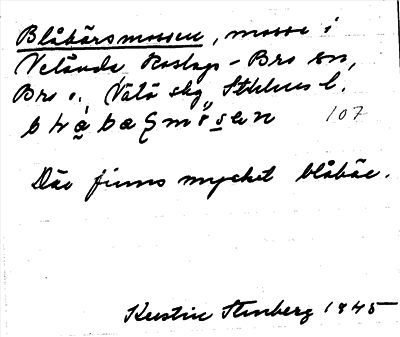 Blåbärsmossen, mosse i
Vetånda Roslags-Bro sn,
Bro o. Vätö skg Sthlms l.
107
Där finns mycket blåbär.
Kerstin Stenberg 1945